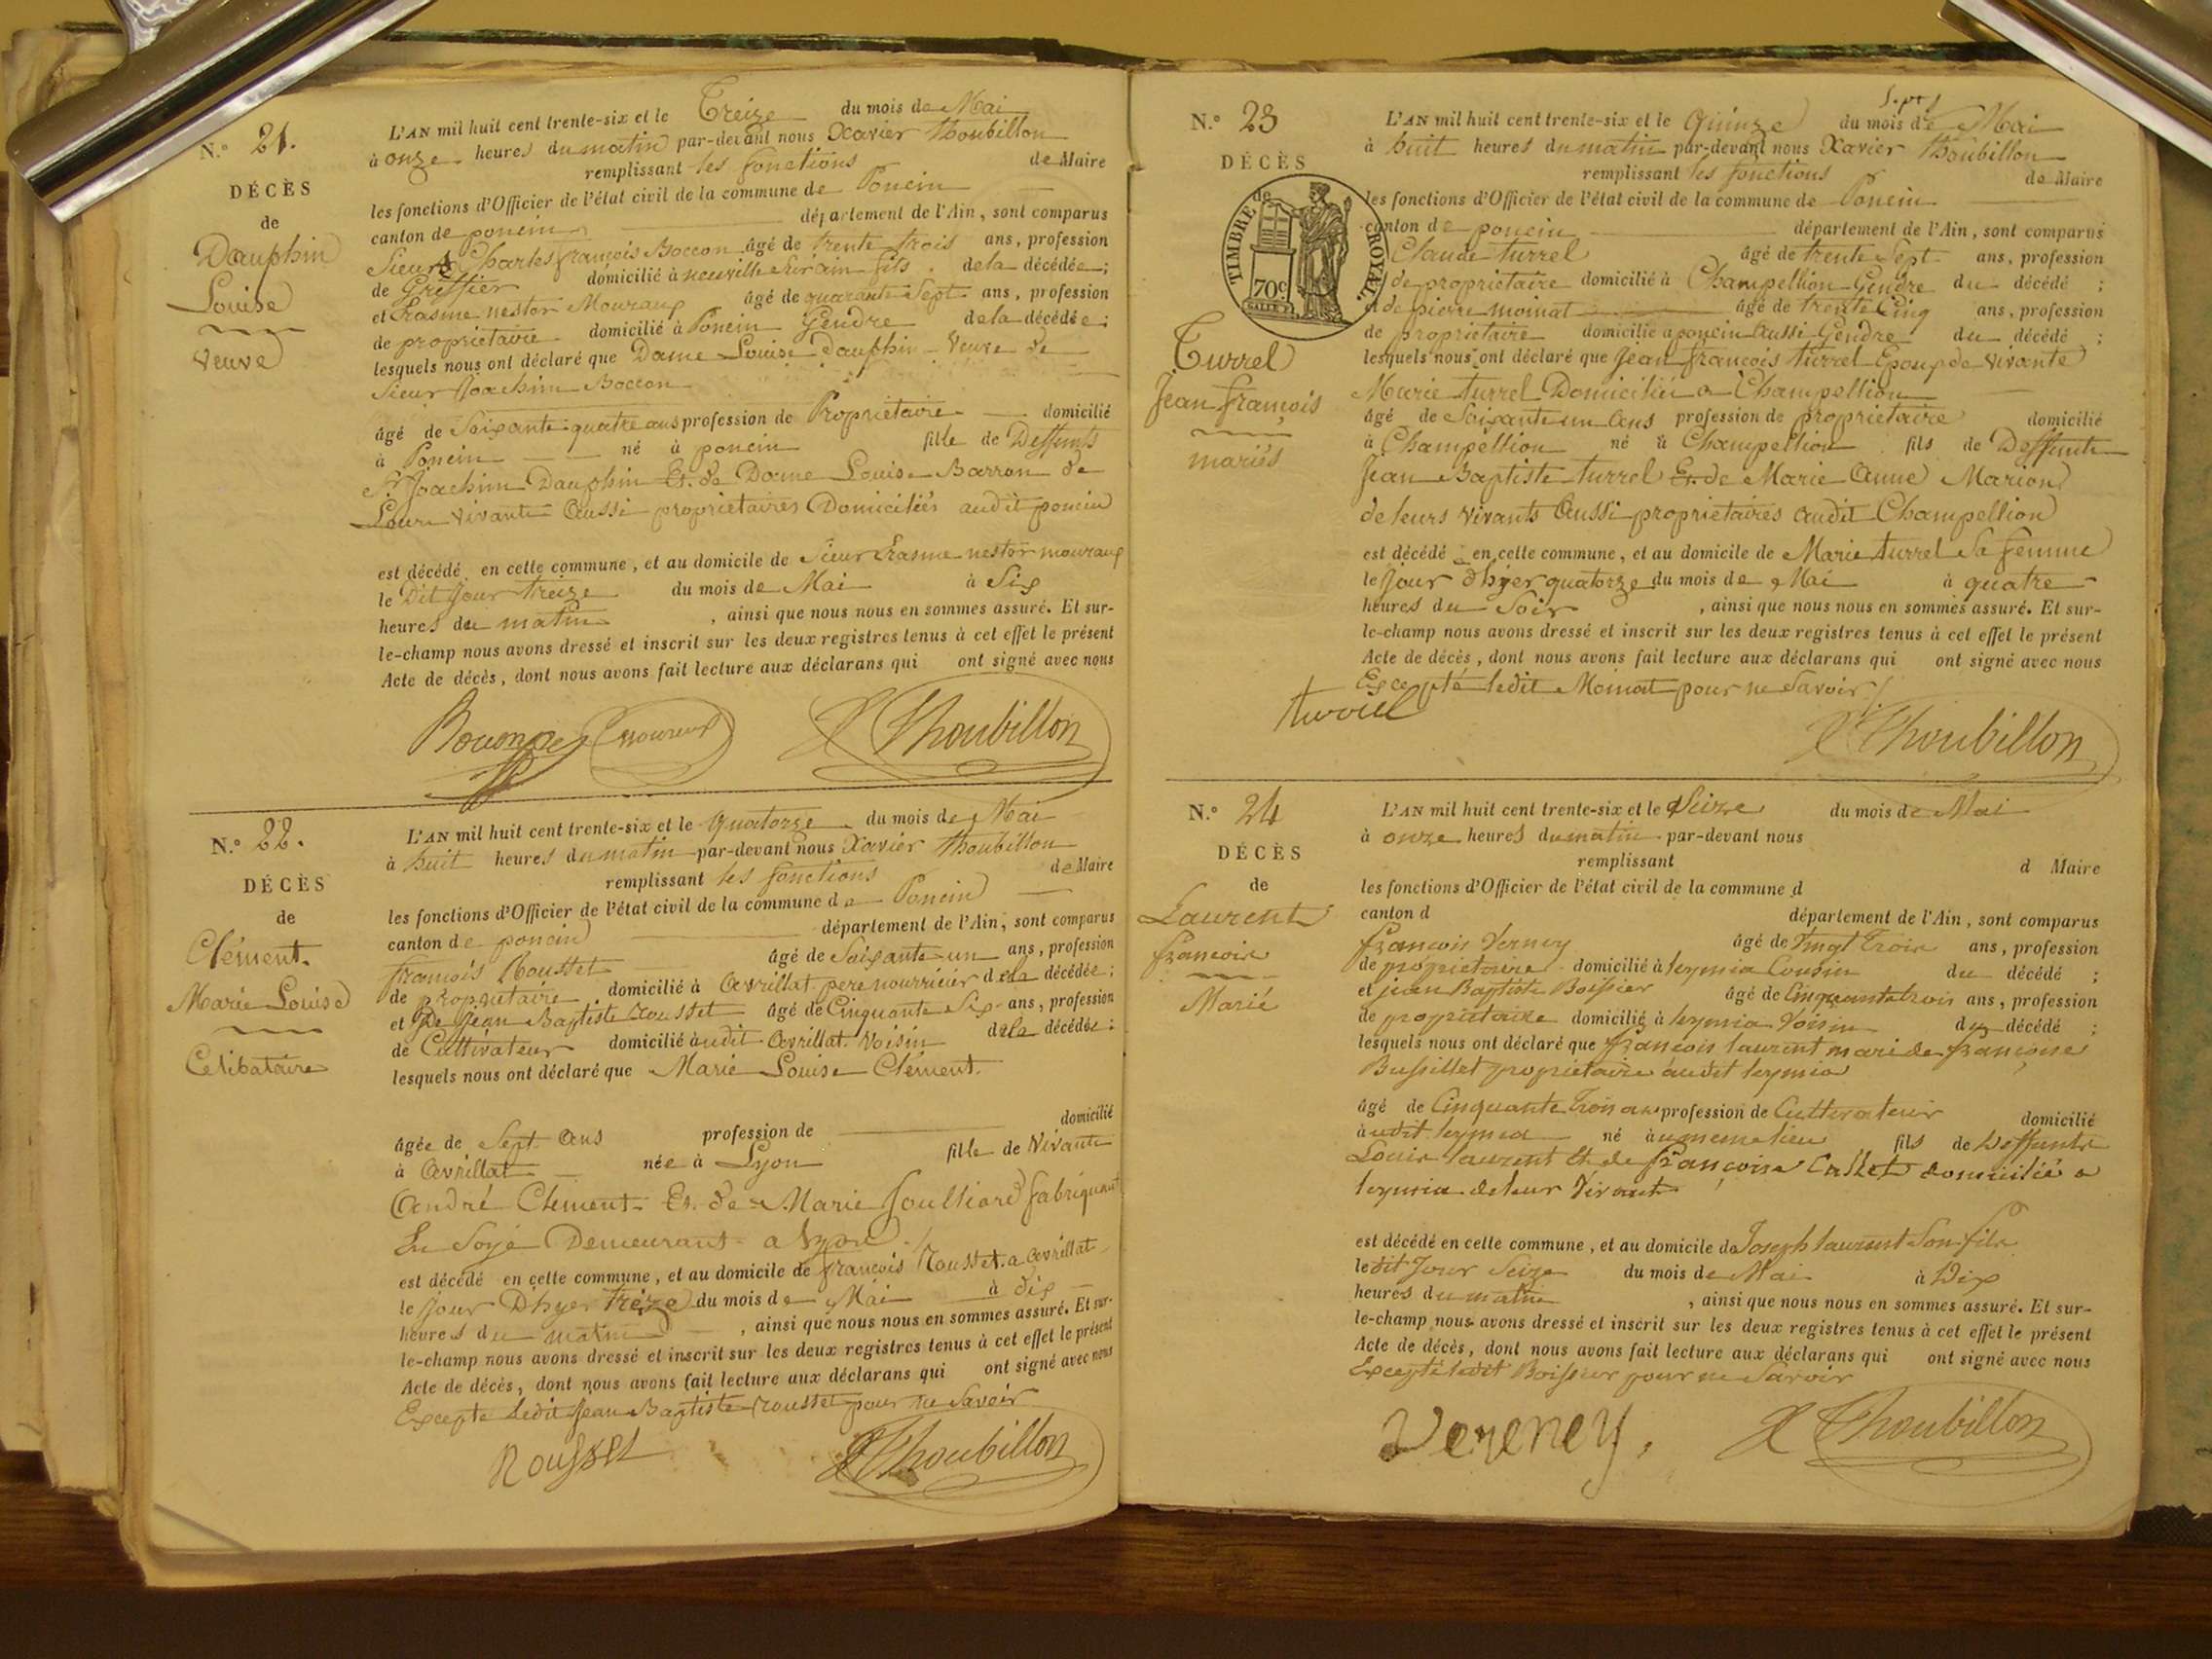 N.° 21.
DÉCÈS
de
Dauphin
Louise
Veuve
L'AN mil huit cent trente-six et le Treize du mois de Mai
à onze heures du matin par-devant nous Xavier Thoubillon
remplissant les fonctions de Maire
les fonctions d'Officier de l'état civil de la commune de Poncin
canton de poncin département de l'Ain, sont comparus
Sieurs Charles françois Boccon âgé de trente trois ans, profession
de Greffier domicilié à neuville sur ain fils de la décédée;
et Erasme nestor Mouraux âgé de quarante Sept ans, profession
de propriétaire domicilié à Poncin Gendre de la décédée;
lesquels nous ont déclaré que Dame Louise dauphin Veuve de
Sieur Joachim Boccon
âgé de Soixante quatre ans profession de Propriétaire domicilié
à Poncin né à poncin fille de Deffunts
Sr. Joachim Dauphin Et. de Dame Louise Barron de
Leur vivants Aussi propriétaires Domiciliés audit poncin
est décédé en cette commune, et au domicile de Sieur Erasme nestor mouraux
le Dit Jour treize du mois de Mai à Six
heures du matin, ainsi que nous nous en sommes assuré. Et sur-
le-champ nous avons dressé et inscrit sur les deux registres tenus à cet effet le présent
Acte de décès, dont nous avons fait lecture aux déclarans qui ont signé avec nous
X Thoubillon
N.° 22.
DÉCÈS
de
Clément.
Marie Louise
Celibataire
L'AN mil huit cent trente-six et le Quatorze du mois de Mai
à huit heures du matin par-devant nous Xavier Thoubillon
remplissant les fonctions de Maire
les fonctions d'Officier de l'état civil de la commune de Poncin
canton de poncin département de l'Ain, sont comparus
françois Rousset âgé de Soixante un ans, profession
de propriétaire domicilié à Avrillat pere nourricier de la décédée;
et De Jean Baptiste rousset âgé de Cinquante Six ans, profession
de Cultivateur domicilié audit Avrillat Voisin de la décédée;
lesquels nous ont déclaré que Marie Louise Clément.
âgée de Sept Ans profession de domicilié
à Avrillat née à Lyon fille de Vivants
André Clement. Et. de Marie Soulliard fabriquant
En Soye Demeurant a Lyon
est décédé en cette commune, et au domicile de françois Rousset a Avrillat
le Jour D'hyer treize du mois de Mai à dix
heures du matin, ainsi que nous nous en sommes assuré. Et sur-
le-champ nous avons dressé et inscrit sur les deux registres tenus à cet effet le présent
Acte de décès, dont nous avons fait lecture aux déclarans qui ont signé avec nous
Excepte ledit Jean Baptiste rousset pour ne Savoir
Rousset X Thoubillon
N.° 23
DÉCÈS
TIMBRE ROYAL.
70c.
Turrel
Jean françois
mariés
L'AN mil huit cent trente-six et le Quinze du mois de Mai
à huit heures du matin par-devant nous Xavier Thoubillon
remplissant les fonctions de Maire
les fonctions d'Officier de l'état civil de la commune de Poncin
canton de poncin département de l'Ain, sont comparus
Claude turrel âgé de trente Sept ans, profession
de propriétaire domicilié à Champellion Gendre du décédé;
et de pierre moinat âgé de trente Cinq ans, profession
de propriétaire domicilié a poncin Aussi Gendre du décédé;
lesquels nous ont déclaré que Jean françois turrel Epoux de vivante
Marie turrel Domiciliée a Champellion
âgé de Soixante un Ans profession de propriétaire domicilié
à Champellion né à Champellion fils de Deffunts
Jean Baptiste turrel Et. de Marie Anne Marion
de leurs vivants Aussi propriétaires audit Champellion
est décédé en cette commune, et au domicile de Marie turrel Sa femme
le Jour d'hyer quatorze du mois de Mai à quatre
heures du Soir, ainsi que nous nous en sommes assuré. Et sur-
le-champ nous avons dressé et inscrit sur les deux registres tenus à cet effet le présent
Acte de décès, dont nous avons fait lecture aux déclarans qui ont signé avec nous
Excepté ledit Moinat pour ne Savoir
turrel X Thoubillon
N.° 24
DÉCÈS
de
Laurent
françois
Marié
L'AN mil huit cent trente-six et le Seize du mois de Mai
à onze heures du matin par-devant nous
remplissant d Maire
les fonctions d'Officier de l'état civil de la commune d
canton d département de l'Ain, sont comparus
françois Verney âgé de Vingt Trois ans, profession
de propriétaire domicilié à leymia Cousin du décédé;
et jean Baptiste Boissier âgé de Cinquante trois ans, profession
de propriétaire domicilié à leymia Voisin du décédé;
lesquels nous ont déclaré que françois laurent mari de françoise
Bussillet propriétaire audit leymia
âgé de Cinquante Trois ans profession de Cultivateur domicilié
audit leymia né au meme lieu fils de Deffunts
Louis laurent Et de françoise Callet domiciliés a
leymia de leur Vivant
est décédé en cette commune, et au domicile de Joseph laurent Son fils
le dit Jour Seize du mois de Mai à Dix
heures du matin, ainsi que nous nous en sommes assuré. Et sur-
le-champ nous avons dressé et inscrit sur les deux registres tenus à cet effet le présent
Acte de décès, dont nous avons fait lecture aux déclarans qui ont signé avec nous
Excepté ledit Boissier pour ne Savoir
Vereney, X Thoubillon